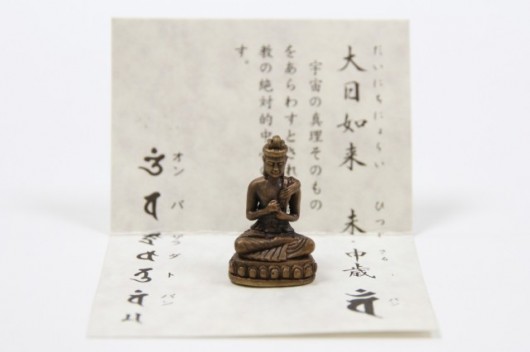 だいにちにょらい ひつじ
大日如来 未・申歳
宇宙の真理そのもの
をあらわすとされ
教の絶対的中
す。
オン バ ザラ ダ ト バン